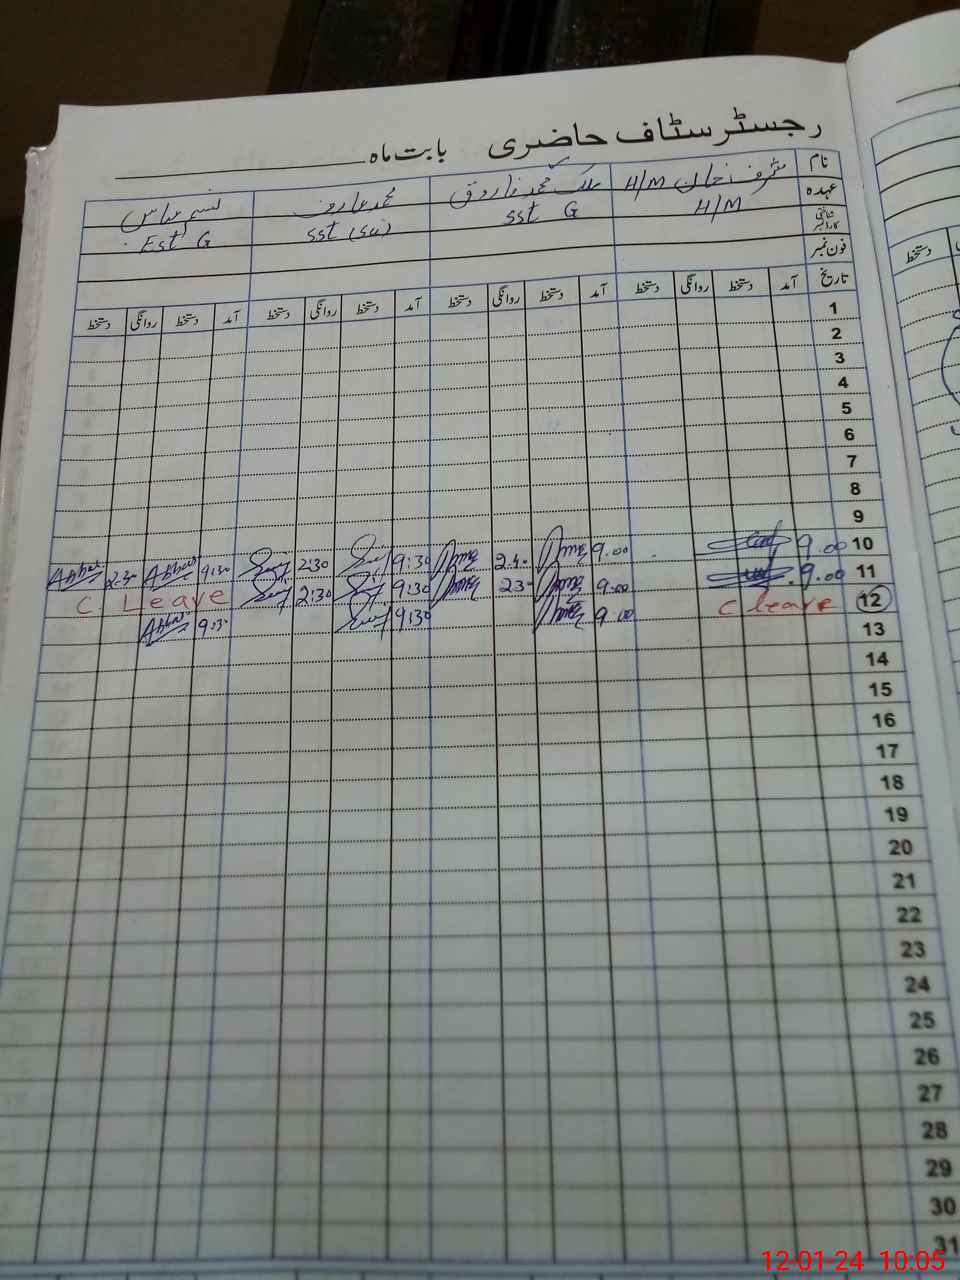 رجسٹر سٹاف حاضری بابت ماہ
نام مشرف خان H/M ملک محمد فاروق محمد عارف نسیم عباس
عہدہ H/M SSt G SSt (Sci) Est G
شناختی کارڈ نمبر
فون نمبر
تاریخ آمد دستخط روانگی دستخط آمد دستخط روانگی دستخط آمد دستخط روانگی دستخط آمد دستخط روانگی دستخط
1
2
3
4
5
6
7
8
9
10 9.00 9.00 2.40 9:30 2:30 9:30 Abbas 2.30 Abbas
11 9.00 9.00 23 9:30 2:30 C. Leave
12 C leave 9.00 9:30 9:30 Abbas
13
14
15
16
17
18
19
20
21
22
23
24
25
26
27
28
29
30
31
دستخط
12-01-24 10:05